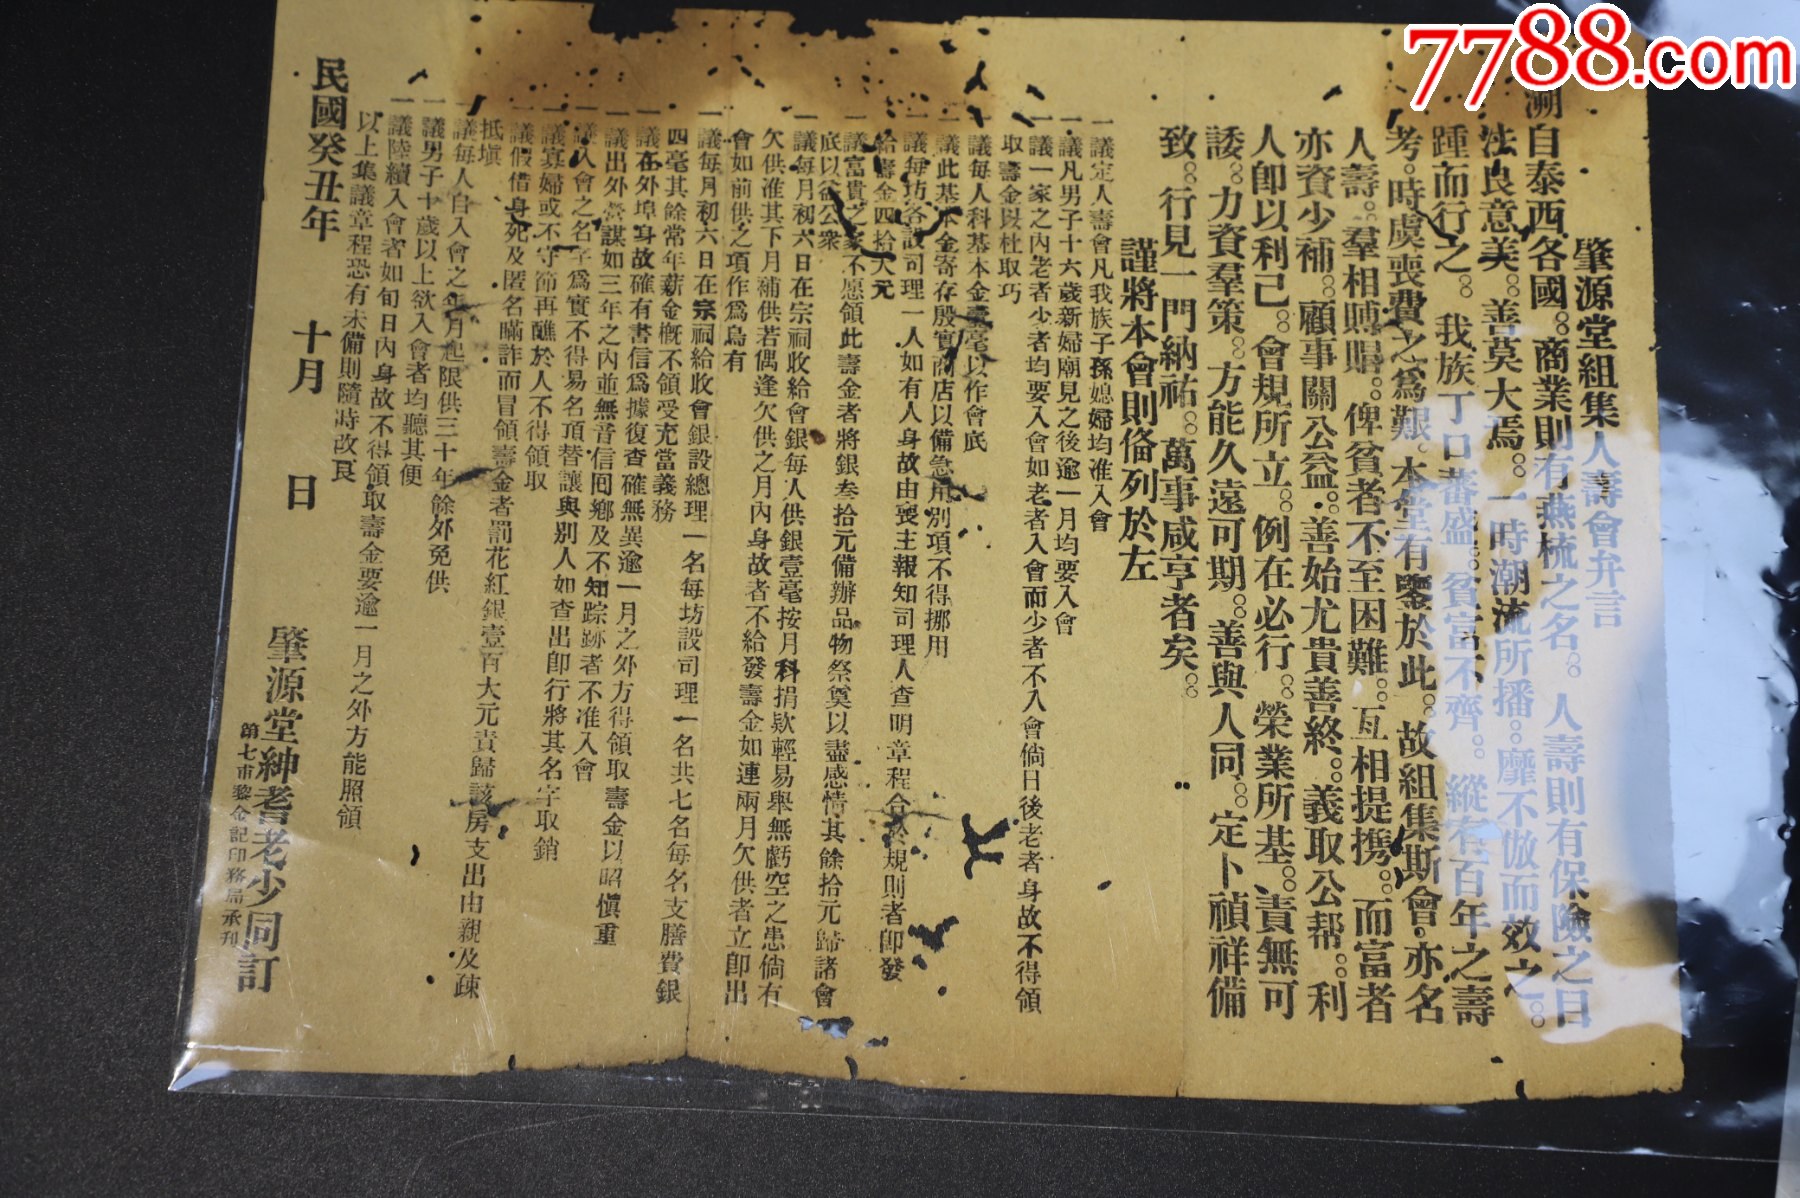 7788.com
肇源堂組集人壽會弁言
溯自泰西各國。商業則有燕梳之名。人壽則有保險之目
法良意美。善莫大焉。一時潮流所播。靡不倣而效之。
踵而行之。我族丁口蕃盛。貧富不齊。縱有百年之壽
考。時虞喪費之爲艱。本堂有鑒於此。故組集斯會。亦名
人壽。羣相賻賵。俾貧者不至困難。互相提携。而富者
亦資少補。顧事關公益。善始尤貴善終。義取公帮。利
人卽以利己。會規所立。例在必行。榮業所基。責無可
諉。力資羣策。方能久遠可期。善與人同。定卜禎祥備
致。行見一門納祜。萬事咸亨者矣。
謹將本會則俻列於左
一議定人壽會凡我族子孫媳婦均准入會
一議凡男子十六歲新婦廟見之後逾一月均要入會
一議一家之内老者少者均要入會如老者入會而少者不入會倘日後老者身故不得領
取壽金以杜取巧
一議每人科基本金壹毫以作會底
一議此基本金寄存殷實商店以備急用別項不得挪用
一議每坊各設司理一人如有人身故由喪主報知司理人查明章程合於規則者卽發
給壽金四拾大元
一議富貴之家不愿領此壽金者將銀叁拾元備辦品物祭奠以盡感情其餘拾元歸諸會
底以益公衆
一議每月初六日在宗祠收給會銀每人供銀壹毫按月科捐欵輕易舉無虧空之患倘有
欠供准其下月補供若偶逢欠供之月内身故者不給發壽金如連兩月欠供者立卽出
會如前供之項作爲烏有
一議每月初六日在宗祠給收會銀設總理一名每坊設司理一名共七名每名支膳費銀
四毫其餘常年薪金概不領受充當義務
一議在外埠身故確有書信爲據復查確無異逾一月之外方得領取壽金以昭愼重
一議出外營謀如三年之内並無音信囘鄉及不知踪跡者不准入會
一議入會之名字爲實不得易名頂替讓與別人如查出卽行將其名字取銷
一議寡婦或不守節再醮於人不得領取
一議假借身死及匿名瞞詐而冒領壽金者罰花紅銀壹百大元責歸該房支出由親及疎
抵塡
一議每人自入會之年月起限供三十年餘外免供
一議男子十歲以上欲入會者均聽其便
一議陸續入會者如旬日内身故不得領取壽金要逾一月之外方能照領
以上集議章程恐有未備則隨時改良
民國癸丑年 十月 日 肇源堂紳耆老少同訂
第七甫黎金記印務局承刋